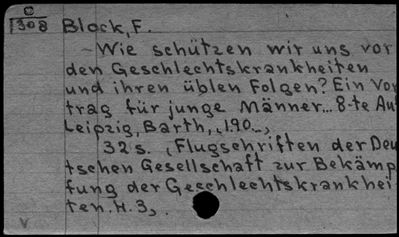 C
1308 Block, F.
Wie schützen wir uns vor
den Geschlechtskrankheiten
und ihren üblen Folgen? Ein Vor
trag für junge Männer... 8-te Au
Leipzig, Barth, 190
32 s. (Flugschriften der Deu
tschen Gesellschaft zur Bekämp
fung der Geschlechtskrankhei
ten. H. 3).
V